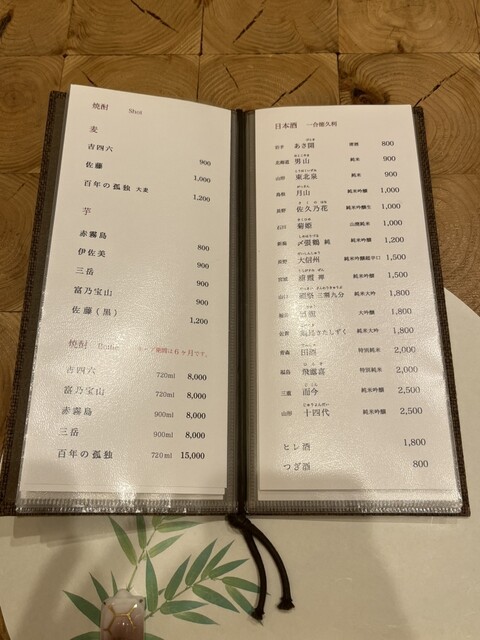 焼酎 Shot
麦
吉四六 900
佐藤 1,000
百年の孤独 大麦 1,200
芋
赤霧島 800
伊佐美 900
三岳 900
富乃宝山 900
佐藤(黒) 1,200
焼酎 は6ヶ月です。
吉四六 720ml 8,000
富乃宝山 720ml 8,000
赤霧島 900ml 8,000
三岳 900ml 8,000
百年の孤独 720ml 15,000
日本酒 一合徳久利
岩手 あさ開 800
北海道 男山 純米 900
山形 東北泉 純米 900
島根 月山 純米吟醸 1,000
長野 佐久乃花 純米吟醸生 1,000
石川 菊姫 山廃純米 1,000
新潟 〆張鶴 純 純米吟醸 1,200
長野 大信州 純米吟醸超辛口 1,500
宮城 浦霞 禅 純米吟醸 1,500
山口 獺祭 三割九分 純米大吟 1,800
大吟醸 1,800
佐賀 さたしずく 純米大吟 1,800
青森 田酒 特別純米 2,000
福島 飛露喜 特別純米 2,000
三重 而今 純米吟醸 2,500
山形 十四代 純米吟醸 2,500
ヒレ酒 1,800
つぎ酒 800